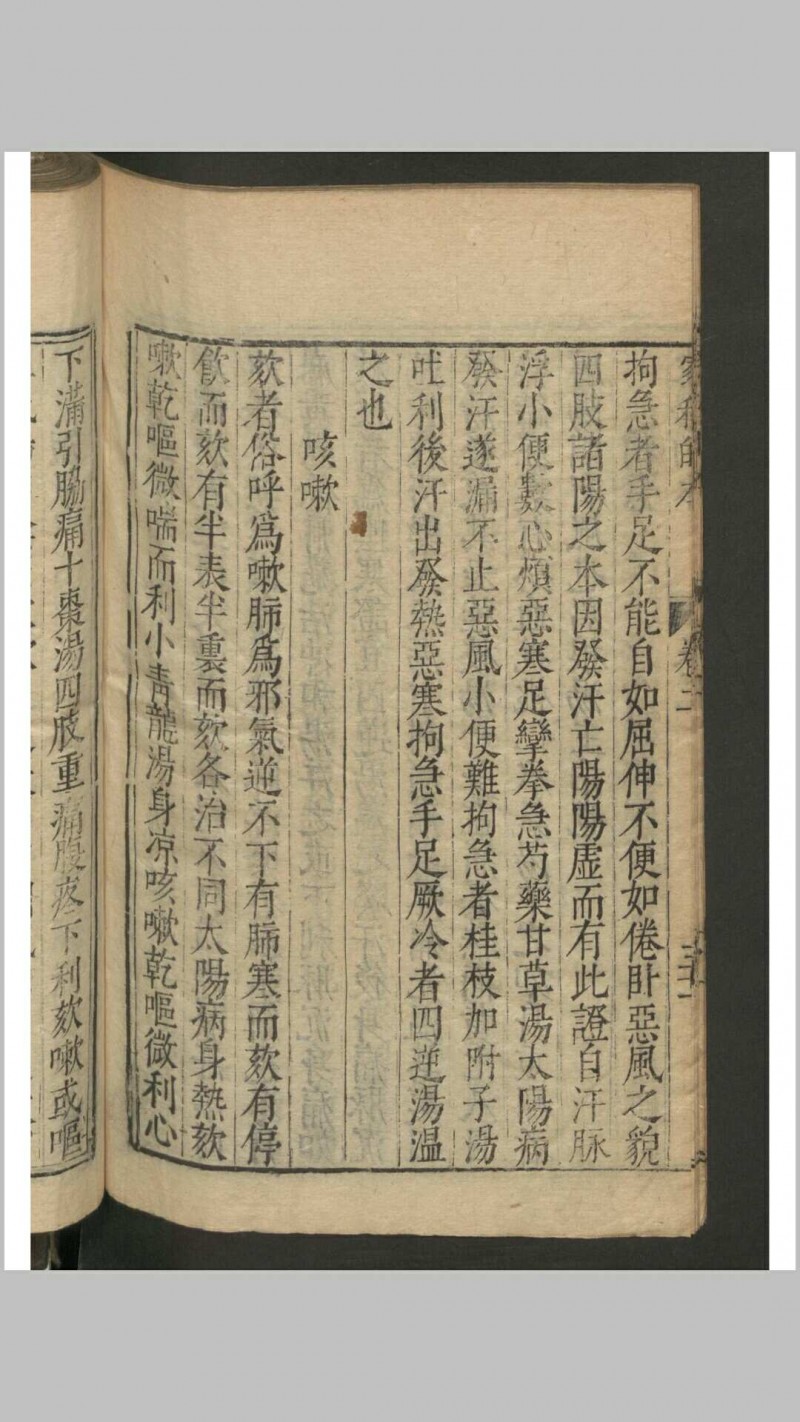 卷二
拘急者手足不能自如屈伸不便如倦卧惡風之貌
四肢諸陽之本因發汗亡陽陽虛而有此證自汗脉
浮小便數心煩惡寒足攣拳急芍藥甘草湯太陽病
發汗遂漏不止惡風小便難拘急者桂枝加附子湯
吐利後汗出發熱惡寒拘急手足厥冷者四逆湯温
之也
咳嗽
欬者俗呼爲嗽肺爲邪氣逆不下有肺寒而欬有停
飲而欬有半表半裏而欬各治不同太陽病身熱欬
嗽乾嘔微喘而利小青龍湯身凉咳嗽乾嘔微利心
下滿引脇痛十棗湯四肢重痛腹疼下利欬嗽或嘔